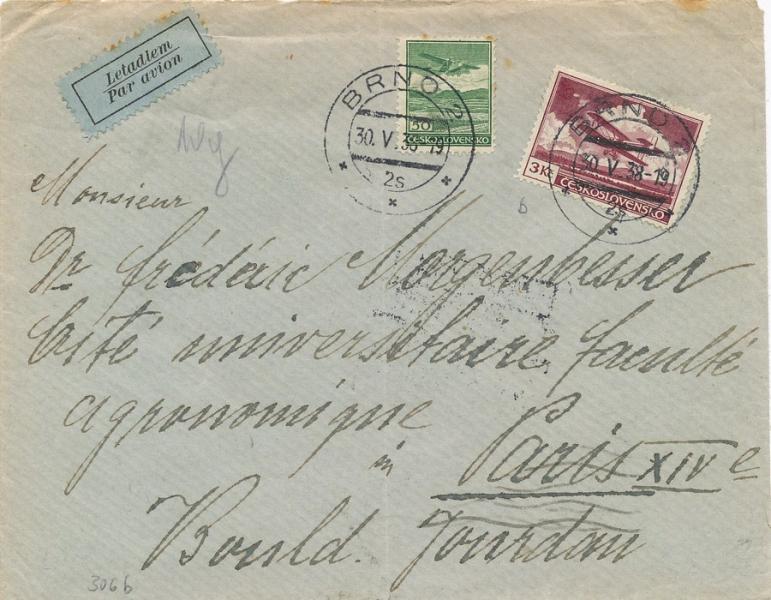 Letadlem
Par avion
50
ČESKOSLOVENSKO
BRNO 2
30. V. 38-19
2s
3 Kč
ČESKOSLOVENSKO
BRNO 2
30. V. 38-19
Monsieur
Dr. Frédéric Morgenbesser
Cité universitaire faculté
agronomique
in Paris XIVe
Bould. Jourdan
306b